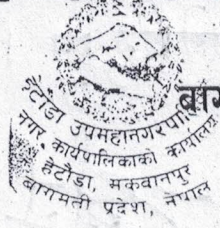 हेटौंडा उपमहानगरपा
बाग
नगर कार्यपालिकाको कार्यालय
हेटौंडा, मकवानपुर
बागमती प्रदेश, नेपाल